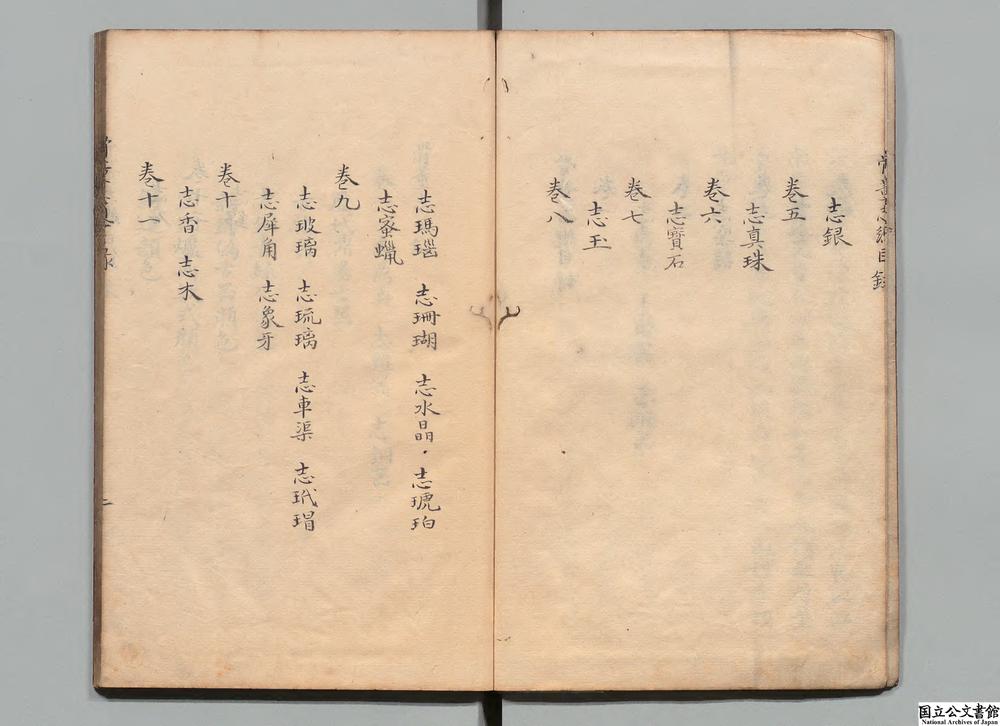 志銀
卷五
志真珠
卷六
志寶石
卷七
志玉
卷八
志瑪瑙 志珊瑚 志水晶 志琥珀
志蜜蠟
卷九
志玻璃 志琉璃 志車渠 志玳瑁
志犀角 志象牙
卷十
志香 志木
卷十一
国立公文書館
National Archives of Japan